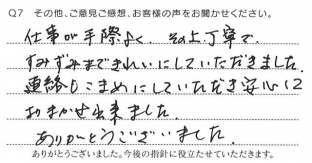 Q7 その他、ご意見ご感想、お客様の声をお聞かせください。
仕事が手際よく、その上丁寧で、
すみずみまできれいにしていただきました。
連絡もこまめにしていただき安心に
おまかせ出来ました。
ありがとうございました。
ありがとうございました。今後の指針に役立たせていただきます。